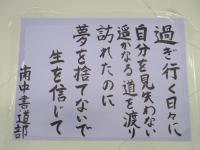 過ぎ行く日々に、
自分を見失わない
遥かなる道を渡り
訪れたのに
夢を捨てないで
生を信じて
南中書道部